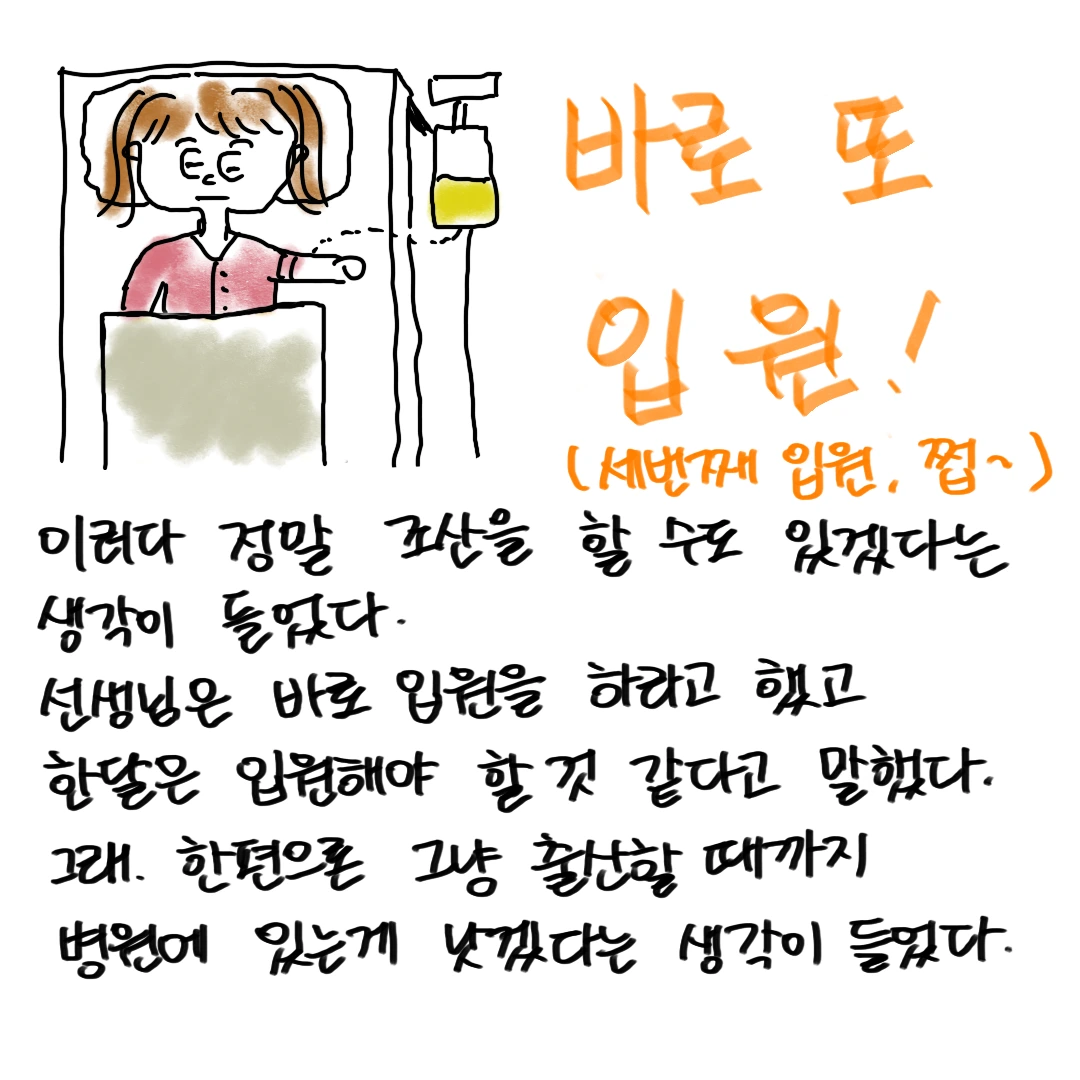 바로 또
입원!
(세번째 입원, 쩝~)
이러다 정말 조산을 할 수도 있겠다는
생각이 들었다.
선생님은 바로 입원을 하라고 했고
한달은 입원해야 할것 같다고 말했다.
그래. 한편으론 그냥 출산할 때까지
병원에 있는게 낫겠다는 생각이 들었다.